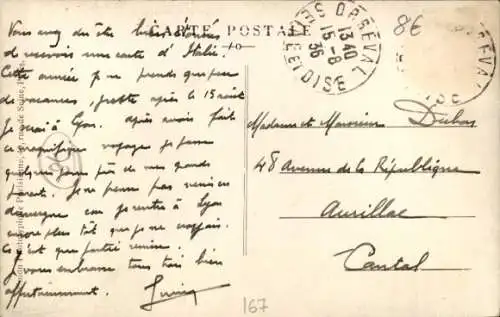 CARTE POSTALE
Vous avez dû être bien étonnés
de recevoir une carte d'Italie.
Cette année je ne prends que peu
de vacances, juste après le 15 août
je serai à Lyon. Après avoir fait
ce magnifique voyage je passe
quelques jours près de mes grands
parents. Je ne pense pas venir en
Auvergne car je rentre à Lyon
encore plus tôt que je ne croyais.
Ce n'est que partie remise.
Je vous embrasse tous trois bien
affectueusement.
13 40
15-8
36
8€
Madame et Monsieur Dubos
48 Avenue de la République
Aurillac
Cantal
167